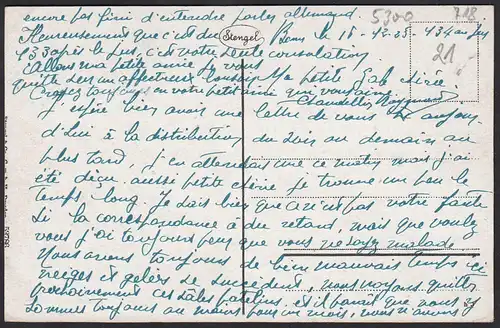 encore pas fini d'entendre parler allemand.
Heureusement que c'est des
Bonn le 18-12-25 - 434 au jus
433 après le jus, c'est votre seule consolation
Stengel
5300
718
21
Allons ma petite amie je vous
quitte des un affectueux ma petite Gaby chérie.
Croyez toujours en votre petit ami qui vous aime
Chandellier Raymond
J'espère bien avoir une lettre de vous aujour
d'hui à la distribution du soir ou demain au
plus tard, j'en attendais une ce matin mais j'ai
été déçu, aussi petite chérie je trouve un peu le
temps long. Je sais bien que ce n'est pas votre faute
si la correspondance a du retard, mais que voulez
vous j'ai toujours peur que vous ne soyez malade.
Nous avons toujours de bien mauvais temps ici
neiges et gelées se succèdent, nous quitter
prochainement ces sales patelins, et il parait que nous
sommes toujours au moins pour un mois, nous n'avons